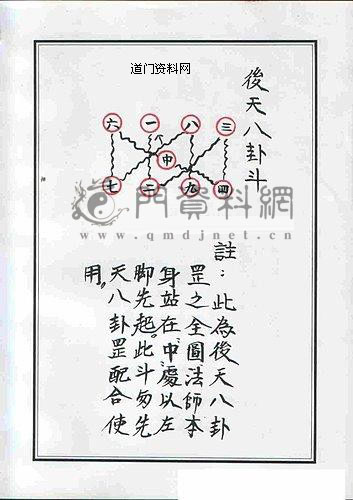 道门资料网
後天八卦斗
六 一 八 三
中
七 二 九 四
門資料網
www.qmdjnet.com
註：此為後天八卦
罡之全圖法師本
身站在“中”處以左
脚先起。此斗勿先
天八卦罡配合使
用。